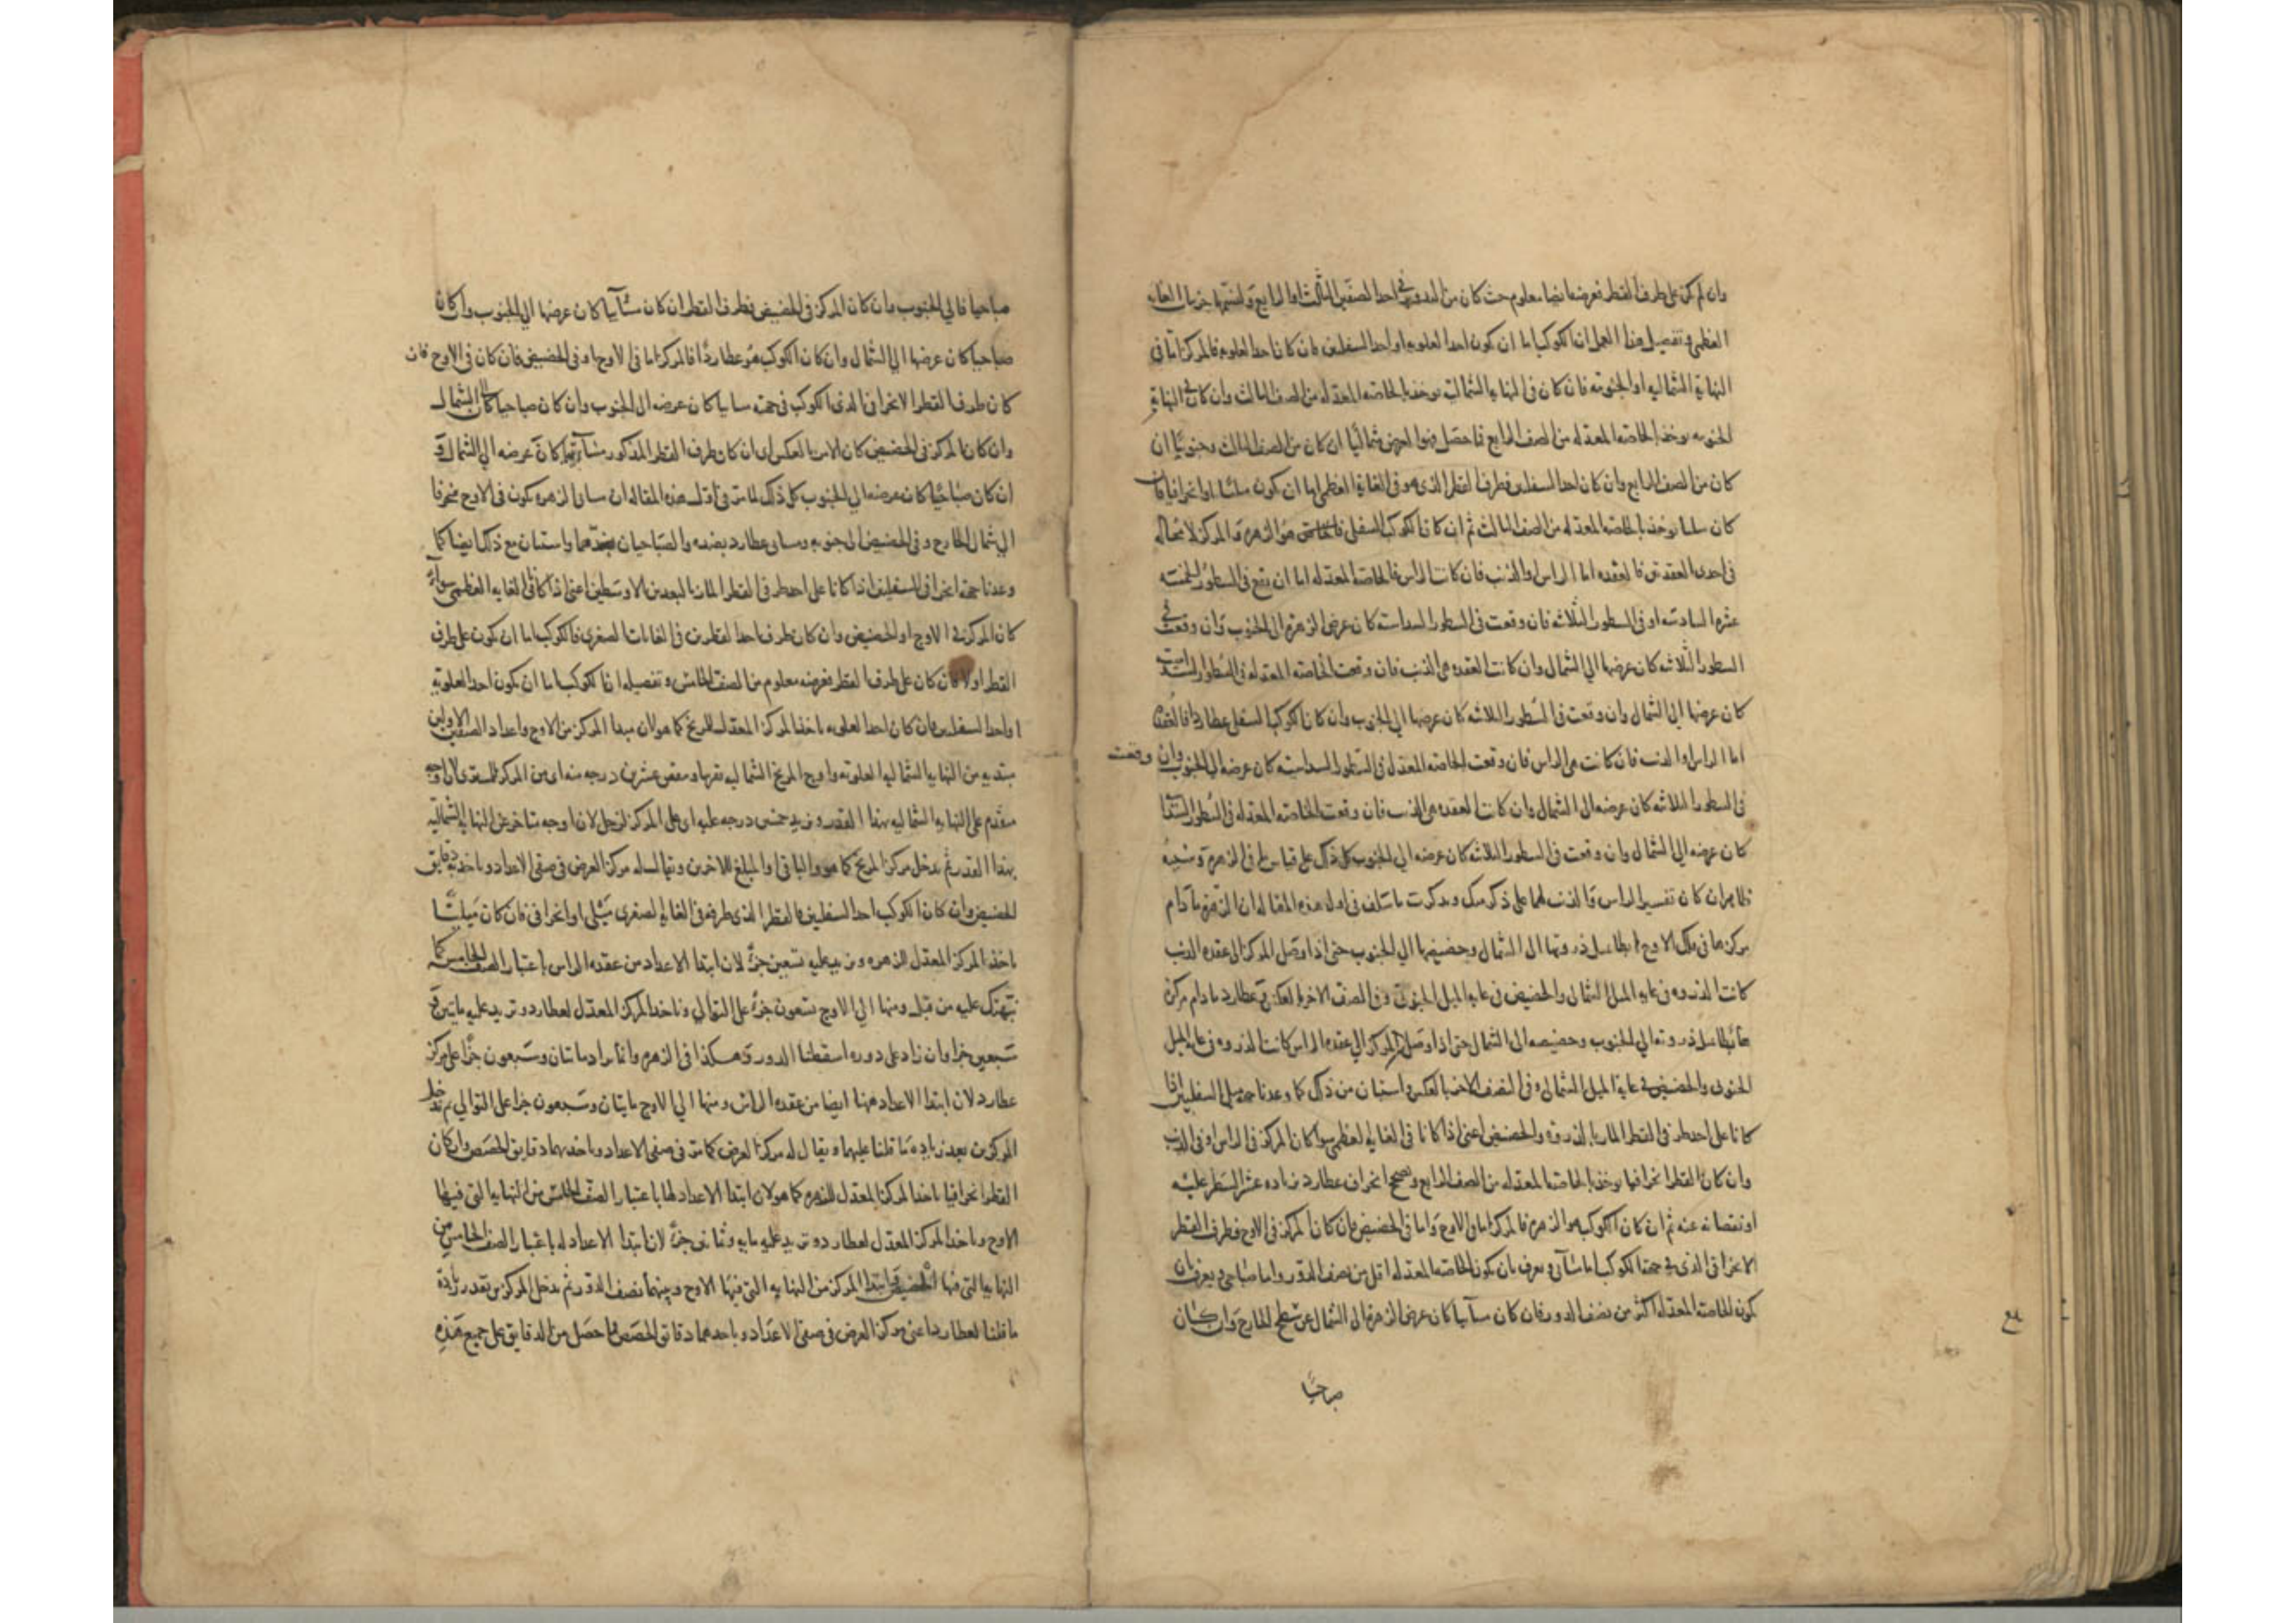 وان لم يكن على طرف القطر فعرضه ايضا معلوم حيث كان من التدوير في احد الصفين الثالث او الرابع
العظمى وتفصيل هذا العمل ان الكوكب اما ان يكون احد العلويه او احد السفليين فان كان احد العلويه فالمركز اما في
النهاية الشماليه او الجنوبيه فان كان في النهايه الشماليه يوخذ بالخاصه المعدله من الصف الثالث وان كان في النهاية
الجنوبيه يوخذ بالخاصه المعدله من الصف الرابع فما حصل فهو العرض شماليا ان كان من الصف الثالث وجنوبيا ان
كان من الصف الرابع وان كان احد السفليين فطرف القطر الذي هو في الغاية العظمى اما ان يكون ميليا او انحرافيا فان
كان ميليا يوخذ بالخاصه المعدله من الصف الثالث ثم ان كان الكوكب السفلي هو الزهره فالمركز لا محاله
في احدى العقدتين فالعقده اما الراس او الذنب فان كانت الراس فالخاصه المعدله اما ان يقع في السطور الخمسه
عشر السادسه او في السطور الثلاثه فان وقعت في السطور السداسيه كان عرض الزهره الى الجنوب وان وقعت في
السطور الثلاثه كان عرضها الي الشمال وان كانت العقده هي الذنب فان وقعت الخاصه المعدله في السطور السداسيه
كان عرضها الي الشمال وان وقعت في السطور الثلاثه كان عرضها الي الجنوب وان كان الكوكب السفلي عطارد فالعقده
اما الراس او الذنب فان كانت هي الراس فان وقعت الخاصه المعدله في السطور السداسيه كان عرضه الى الجنوب وان وقعت
في السطور الثلاثه كان عرضه الى الشمال وان كانت العقده هي الذنب فان وقعت الخاصه المعدله في السطور
كان عرضه الي الشمال وان وقعت في السطور الثلاثه كان عرضه الي الجنوب كل ذلك على قياس ما في الزهره
ظاهر ان كان تفسير الراس والذنب لهما على ذكر منك وتذكرت ما سلف في اول هذه المقاله ان الزهره ما دام
مركزها في فلك الاوج هابطا ميل ذروتها الى الشمال وحضيضها الي الجنوب حتى اذا وصل المركز الى عقده الذنب
كانت الذروه في غايه الميل الشمالي والحضيض في غايه الميل الجنوبي وفي الصف الاخر بالعكس وعطارد ما دام مركزه
هابطا ميل ذروته الي الجنوب وحضيضه الى الشمال حتى اذا وصل المركز الي عقده الراس كانت الذروه في غايه الميل
الجنوبى والحضيض في غاية الميل الشمالي وفي النصف الاخر بالعكس واستبان من ذلك كما وعدنا جهه ميلى السفليين اذا
كانا على احد طرفي القطر المار بالذروه والحضيض اعنى اذا كانا في الغايه العظمى سوا كان المركز في الراس او في الذنب
وان كان القطر انحرافيا يوخذ بالخاصه المعدله من الصف الرابع ويصحح انحراف عطارد بزياده عشر السطر عليه
او نقصانه عنه ثم ان كان الكوكب هو الزهره فالمركز اما في الاوج واما في الحضيض فان كان المركز في الاوج فطرف القطر
الانحرافي الذي في جهة الكوكب اما مسائي ويعرف بان يكون الخاصه المعدله اقل من نصف الدور واما صباحي ويعرف بان
يكون الخاصه المعدله اكثر من نصف الدور فان كان مسائيا كان عرض الزهره الى الشمال عن سطح الخارج وان كان
صباحيا
صباحيا فالي الجنوب وان كان المركز في الحضيض فطرف القطر ان كان مسائيا كان عرضها الي الجنوب وان كان
صباحيا كان عرضها الي الشمال وان كان الكوكب هو عطاردا فالمركز اما في الاوج او في الحضيض فان كان في الاوج فان
كان طرف القطر الانحرافي الذي الكوكب في جهته مسائيا كان عرضه الى الجنوب وان كان صباحيا كان الى الشمال
وان كان المركز في الحضيض كان الامر بالعكس اي ان كان طرف القطر المذكور مسائيا كان عرضه الي الشمال و
ان كان صباحيا كان عرضه الي الجنوب كل ذلك لما مر في اول هذه المقاله ان مسائي الزهره يكون في الاوج منحرفا
الي شمال الخارج وفي الحضيض الى جنوبه ومسائي عطارد بضده والصباحيان بضدهما واستبان مع ذلك ايضا كما
وعدنا جهة انحرافي السفليين اذا كانا على احد طرفي القطر المار بالبعدين الاوسطين اعني اذا كانا في الغايه العظمى سواء
كان المركز في الاوج او الحضيض وان كان طرف احد القطرين في الغايات الصغرى فالكوكب اما ان يكون على طرف
القطر او لا فان كان على طرف القطر فعرضه معلوم من الصف الخامس وتفصيله ان الكوكب اما ان يكون احد العلويه
او احد السفليين فان كان احد العلويه ناخذ المركز المعدل للمريخ كما هو لان مبدا المركز من الاوج واعداد الصفين الاولين
مبتديه من النهايه الشماليه العلويه واوج المريخ الشماليه بقربها وننقص عشرين درجه منه اي من المركز للمشتري لان اوجه
متقدم على النهايه الشماليه بهذا القدر ونزيد خمسين درجه عليه اي على المركز لزحل لان اوجه متاخر عن النهايه الشماليه
بهذا القدر ثم ندخل مركز المريخ كما هو والباقي او المبلغ للاخرين ويقال له مركز العرض في صفي الاعداد وناخذ به دقايق
الحصص وان كان الكوكب احد السفليين فالقطر الذي طرفه في الغايه الصغرى ميلي او انحرافي فان كان ميليا
ناخذ المركز المعدل للزهره ونزيد عليه تسعين جزءا لان ابتدا الاعداد من عقده الراس باعتبار الصف الخامس كما
نبهتك عليه من قبل ومنها الي الاوج تسعون جزءا على التوالي وناخذ المركز المعدل لعطارد ونزيد عليه مايتين و
سبعين جزءا وان زاد على دوره اسقطنا الدور وهكذا في الزهره وانما زاد مائتان وسبعون جزءا على مركز
عطارد لان ابتدا الاعداد ههنا ايضا من عقده الراس ومنها الي الاوج مايتان وسبعون جزءا على التوالي ثم ندخل
المركزين بعد زياده ما قلنا عليهما ويقال له مركز العرض كما مر في صفي الاعداد وناخذ بهما دقايق الحصص وان كان
القطر انحرافيا ناخذ المركز المعدل للزهره كما هو لان ابتدا الاعداد لها باعتبار الصف الخامس من النهايه التي فيها
الاوج وناخذ المركز المعدل لعطارد ونزيد عليه مايه وثمانين جزءا لان ابتدا الاعداد له باعتبار الصف الخامس من
النهايه التي فيها الحضيض وابتدا المركز من النهايه التي فيها الاوج وبينهما نصف الدور ثم ندخل المركزين بعد زيادة
ما قلنا لعطارد اعنى مركز العرض في صفي الاعداد وناخذ بهما دقائق الحصص فما حصل من الدقايق على جميع هذه